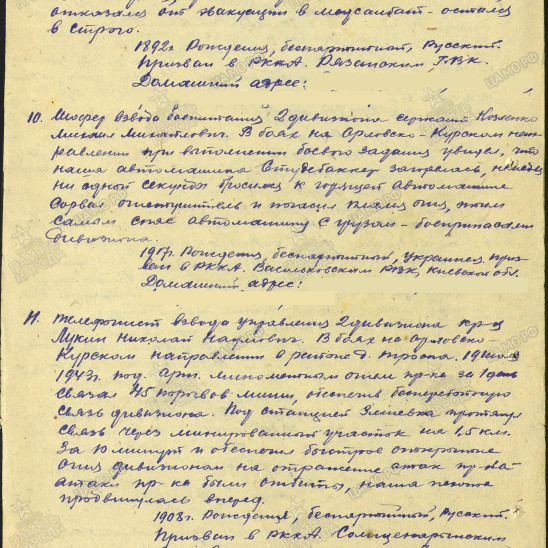 отказался от эвакуации в медсанбат - остался
в строю.
1892г. Рождения, беспартийный, Русский.
Призван в РККА. Рязанским Г.В.К.
Домашний адрес:
10. Шофер взвода боепитания 2 дивизиона сержант
Михаил Михайлович. В боях на Орловско-Курском нап-
равлении при выполнении боевого задания увидел, что
наша автомашина Студебаккер загорелась, не
ни одной секунды бросился к горящей автомашине
сорвал огнетушитель и погасил пламя огня, этим
самым спас автомашину с грузом - боеприпасами
дивизиона.
1917г. Рождения, беспартийный, украинец. Приз-
ван в РККА. Васильковским РВК, Киевской обл.
Домашний адрес:
11. Телефонист взвода управления 2 дивизиона кр-ц
Лукин Николай Наумович. В боях на Орловско-
Курском направлении в районе д. Тросна. 19 июля
1943г. под арт. минометным огнем пр-ка за 1 день
связал 45 порывов линии, обеспечив бесперебойную
связь дивизиона. Под станцией Змиевка протянул
связь через минированный участок на 1,5 км.
За 10 минут и обеспечил быстрое открытие
огня дивизионом на отражение атак пр-ка
атаки пр-ка были отбиты, наша пехота
продвинулась вперед.
1908г. Рождения, беспартийный, Русский.
Призван в РККА. Солнцегорским